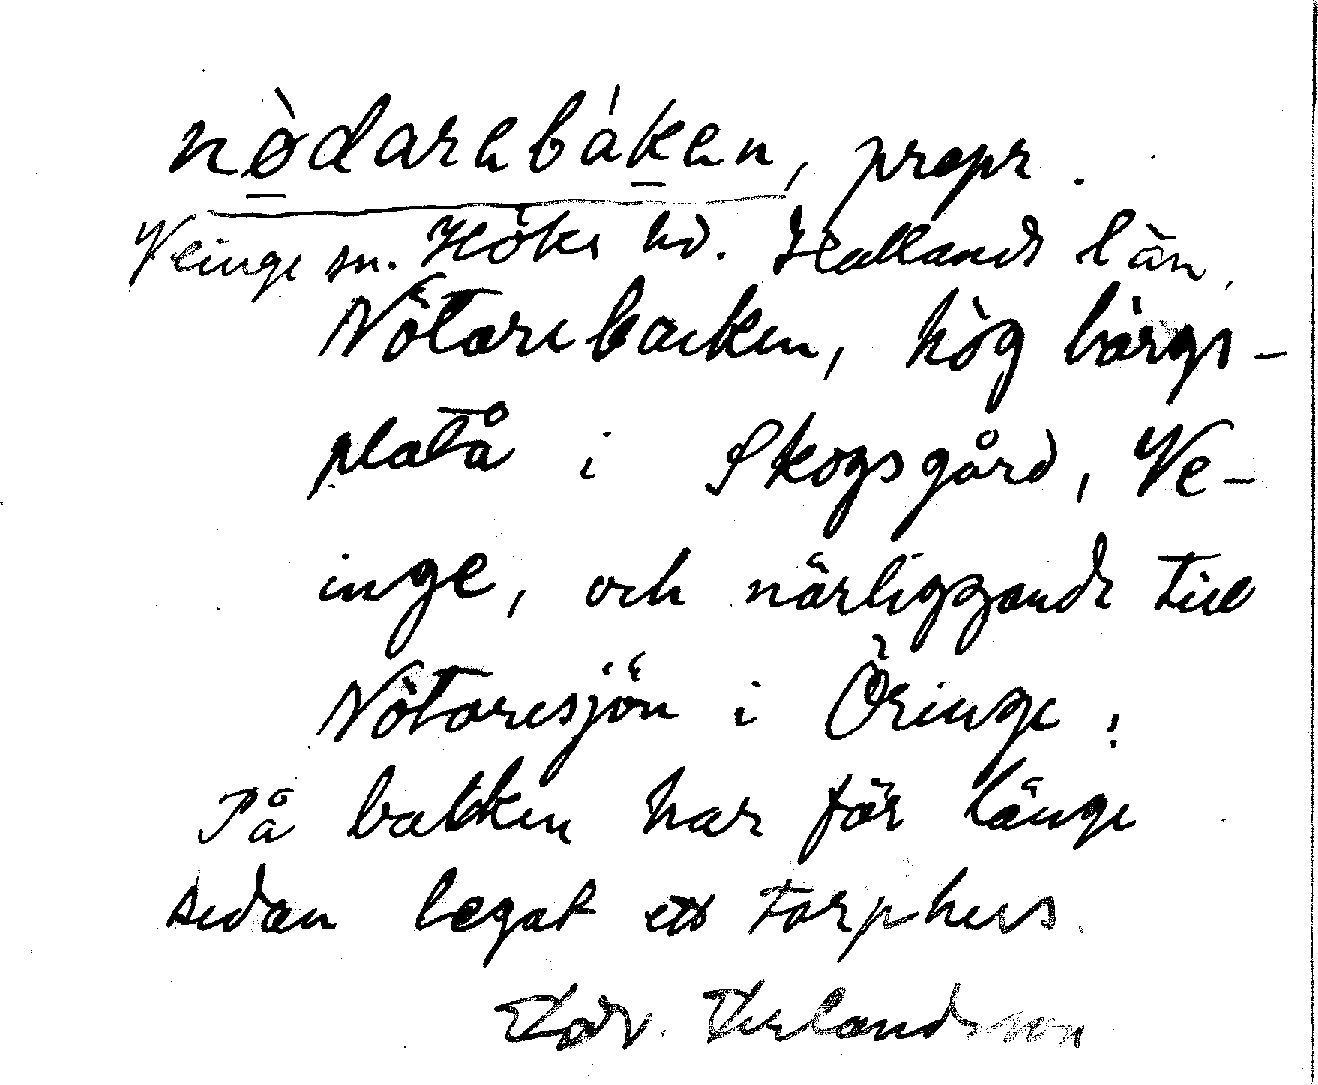 nø̀darebáken, propr.
Veinge sn. Höks hd. Hallands län,
Nötarebacken, hög bärgs-
platå i Skogsgård, Ve-
inge, och närliggande till
Nötaresjön i Öringe.
På backen har för länge
sedan legat ett torphus.
Edv. Erlandsson